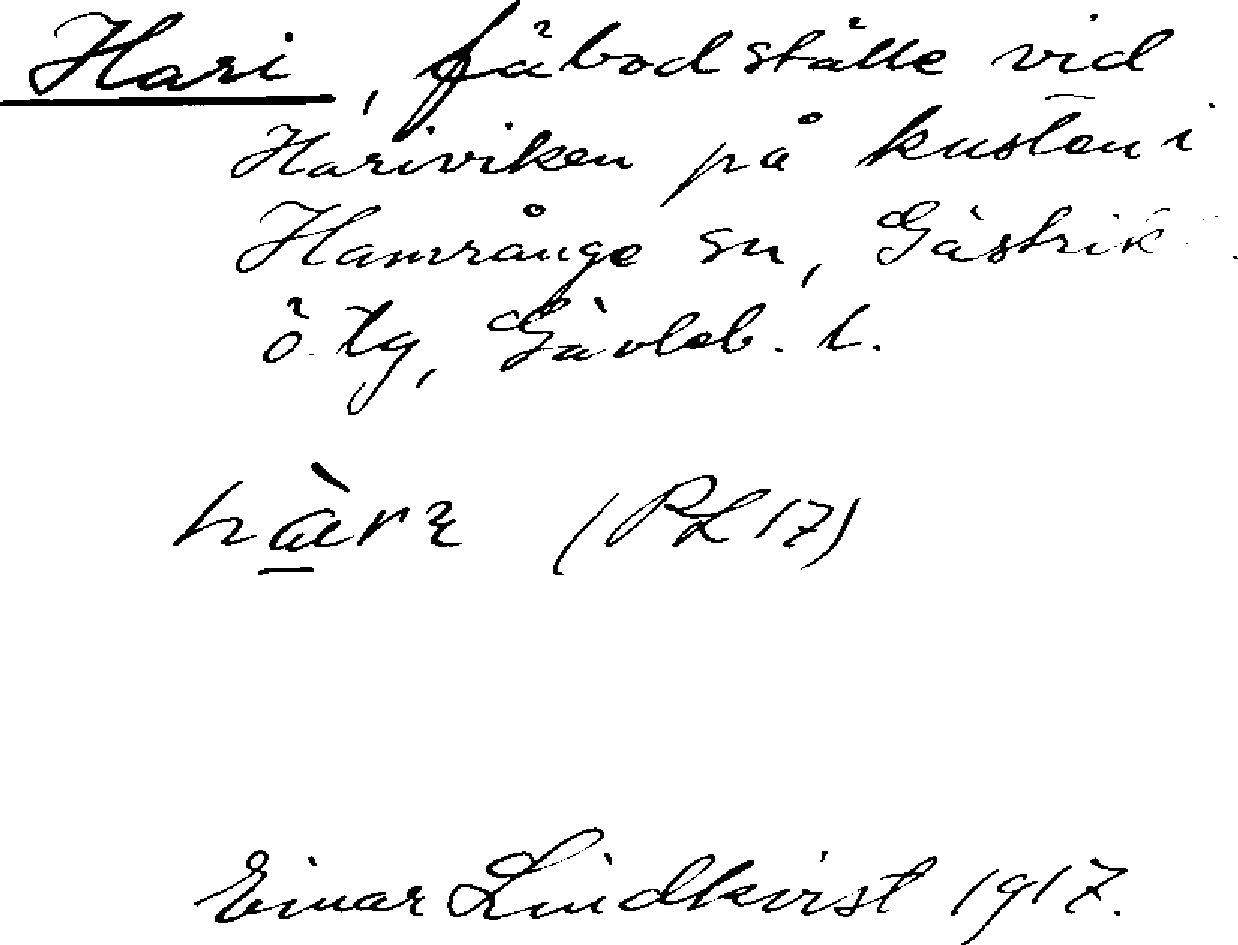 Hari, fäbodställe vid
Hariviken på kusten i
Hamrånge sn, Gästrik
ö. tg, Gävleb. l.
(PL 17)
Einar Lindkvist 1917.